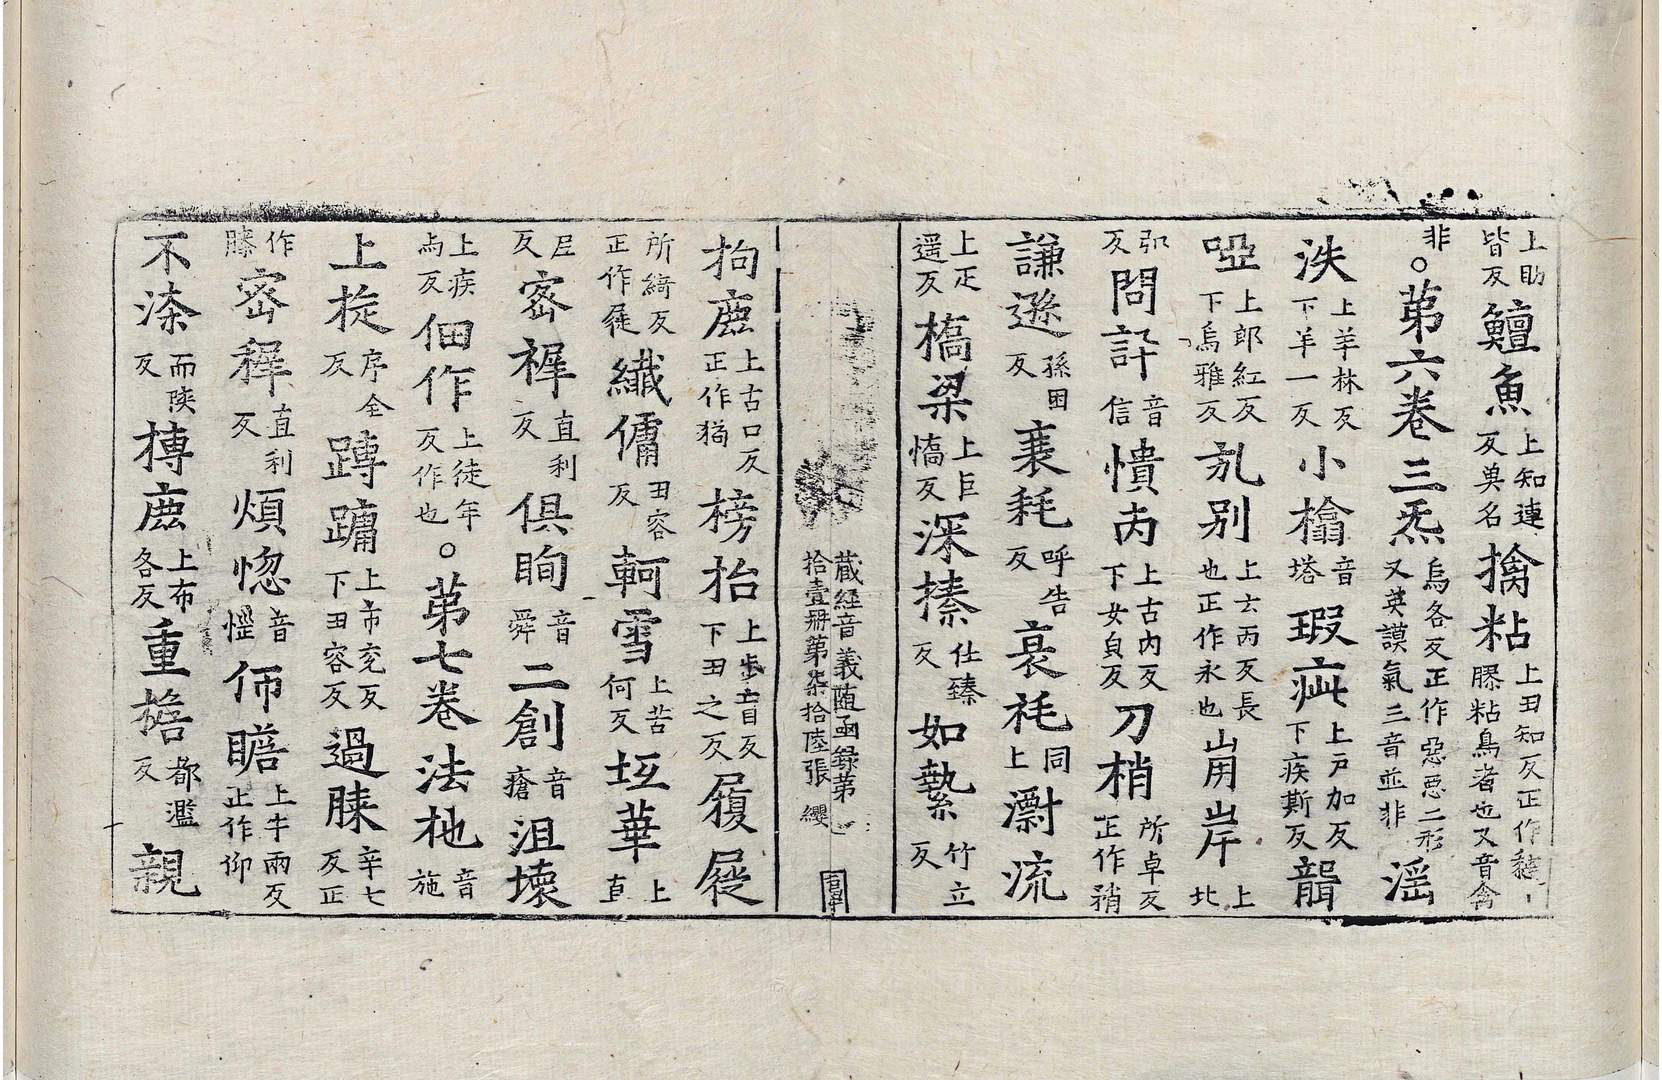 上助皆反鱣魚上知連反奠名擒粘上丑知反正作黐膠粘鳥者也又音禽
非。第六卷三炁烏各反正作惡悪二形又英謨氣三音並非淫
泆上羊林反下羊一反小㯓音塔瑕疵上戸加反下疾斯反聾
啞上郎紅反下烏雅反𣱵別上云丙反長也正作永也崗岸上北
邟反問訃音信憒丙上古內反下女貞反刀梢所卓反正作䂎
謙遜孫困反衰耗呼告反衰秏同上㵩流
上疋遥反橋梁上巨憍反深搸仕臻反如縶竹立反
藏経音義随函録第拾壹册第柒拾陸張 纓
拘鹿上古口反正作猗榜抬上步盲反下丑之反履屣
所綺反正作屣纖傭丑容反軻雪上苦何反垭華上直
尼反密稺直利反俱眴音舜二創音瘡沮壞
上疾与反佃作上徒年反作也。第七卷法杝音施
上㨔序全反蹲踊上市兖反下田容反過膝辛七反正
作膝密稺直利反煩惚音惱仰瞻上牛兩反正作仰
不漆而陜反搏鹿上布各反重檐都濫反親